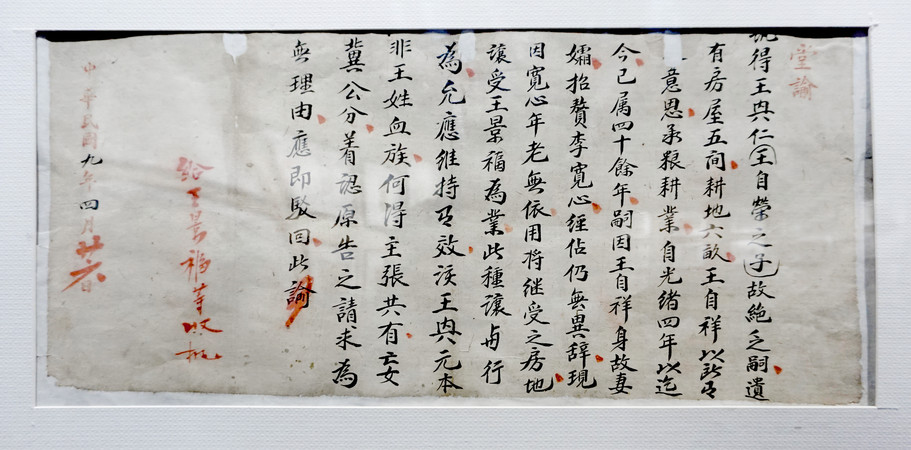 堂諭
訊得王典仁(王自榮之子)故絶之嗣遺
有房屋五间耕地六畝王自祥以所有
意思承粮耕業自光绪四年以迄
今已属四十餘年嗣因王自祥身故妻
孀招贅李寬心經佔仍無異辞現
因寬心年老無依用将继受之房地
讓受王景福為業此種讓与行
為允應维持有效王典元本
非王姓血族何得主張共有妄
冀公分着認原告之請求為
無理由應即駁回此諭
给王景福等收执
中華民國九年四月廿六日